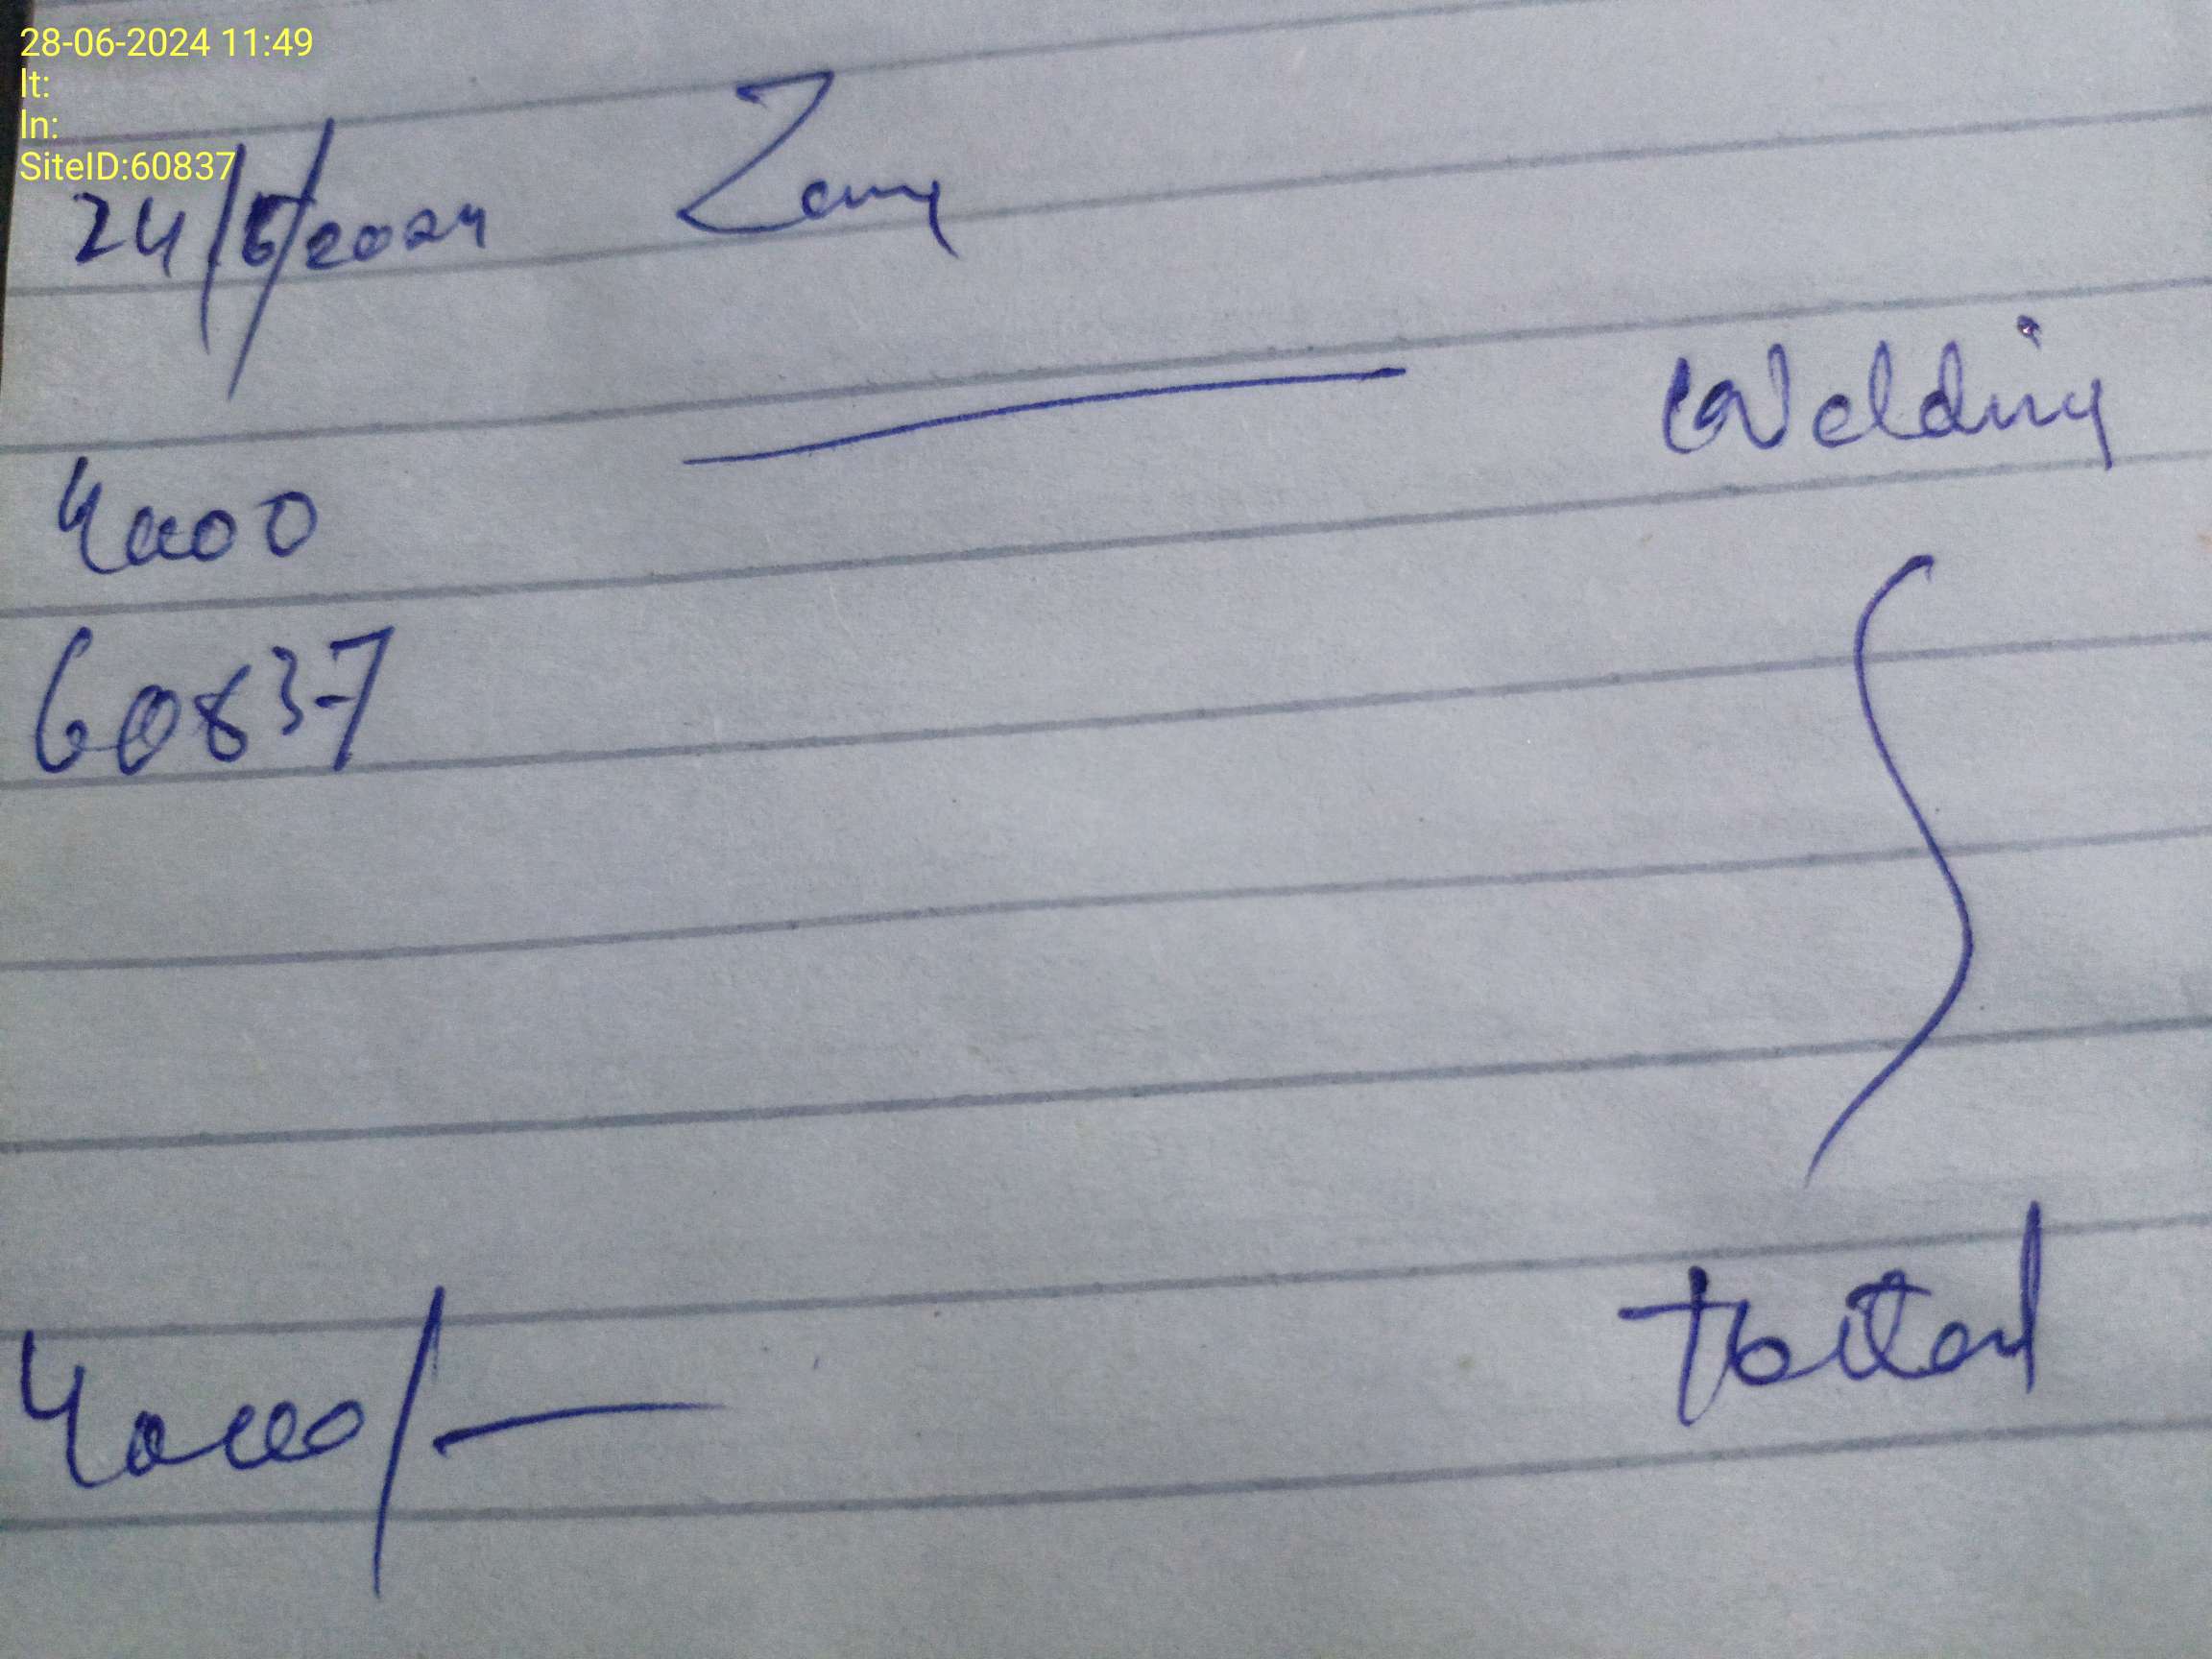 28-06-2024 11:49
lt:
ln:
SiteID:60837
24/6/2024
Welding
4000
60837
total
4000/-